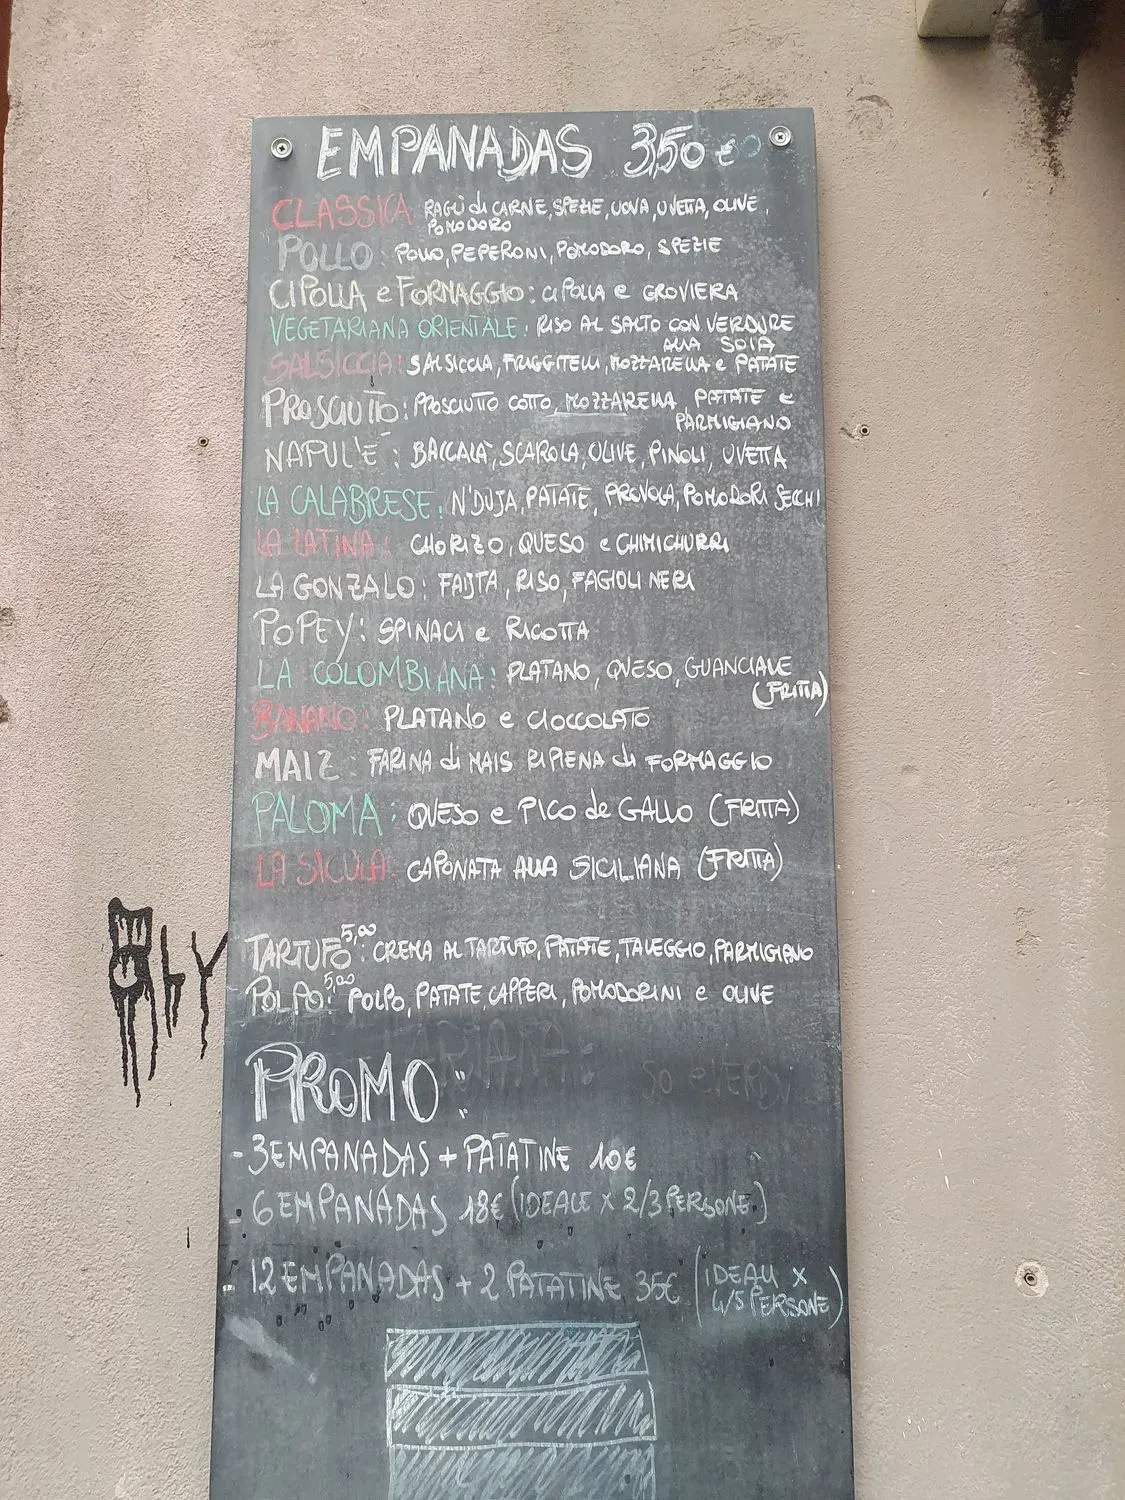 EMPANADAS 3,50 €
CLASSICA RAGÙ di CARNE, SPEZIE, UOVA, UVETTA, OLIVE,
POMODORO
POLLO: POLLO, PEPERONI, POMODORO, SPEZIE
CIPOLLA e FORMAGGIO: CIPOLLA e GROVIERA
VEGETARIANA ORIENTALE: RISO AL SALTO CON VERDURE
ALLA SOIA
SALSICCIA: SALSICCIA, FRIGGITELLI, MOZZARELLA e PATATE
PROSCIUTTO: PROSCIUTTO COTTO, MOZZARELLA, PATATE e
PARMIGIANO
NAPUL'È: BACCALÀ, SCAROLA, OLIVE, PINOLI, UVETTA
LA CALABRESE: N'DUJA, PATATE, PROVOLA, POMODORI SECCHI
LA LATINA: CHORIZO, QUESO e CHIMICHURRI
LA GONZALO: FAJITA, RISO, FAGIOLI NERI
POPEY: SPINACI e RICOTTA
LA COLOMBIANA: PLATANO, QUESO, GUANCIALE
(FRITTA)
BANANO: PLATANO e CIOCCOLATO
MAIZ: FARINA di MAIS RIPIENA di FORMAGGIO
PALOMA: QUESO e PICO de GALLO (FRITTA)
LA SICULA: CAPONATA ALLA SICILIANA (FRITTA)
TARTUFO 5,00: CREMA AL TARTUFO, PATATE, TALEGGIO, PARMIGIANO
POLPO: 5,00 POLPO, PATATE, CAPPERI, POMODORINI e OLIVE
PROMO:
- 3 EMPANADAS + PATATINE 10€
- 6 EMPANADAS 18€ (IDEALE X 2/3 PERSONE)
- 12 EMPANADAS + 2 PATATINE 35€ (IDEALI X
4/5 PERSONE)